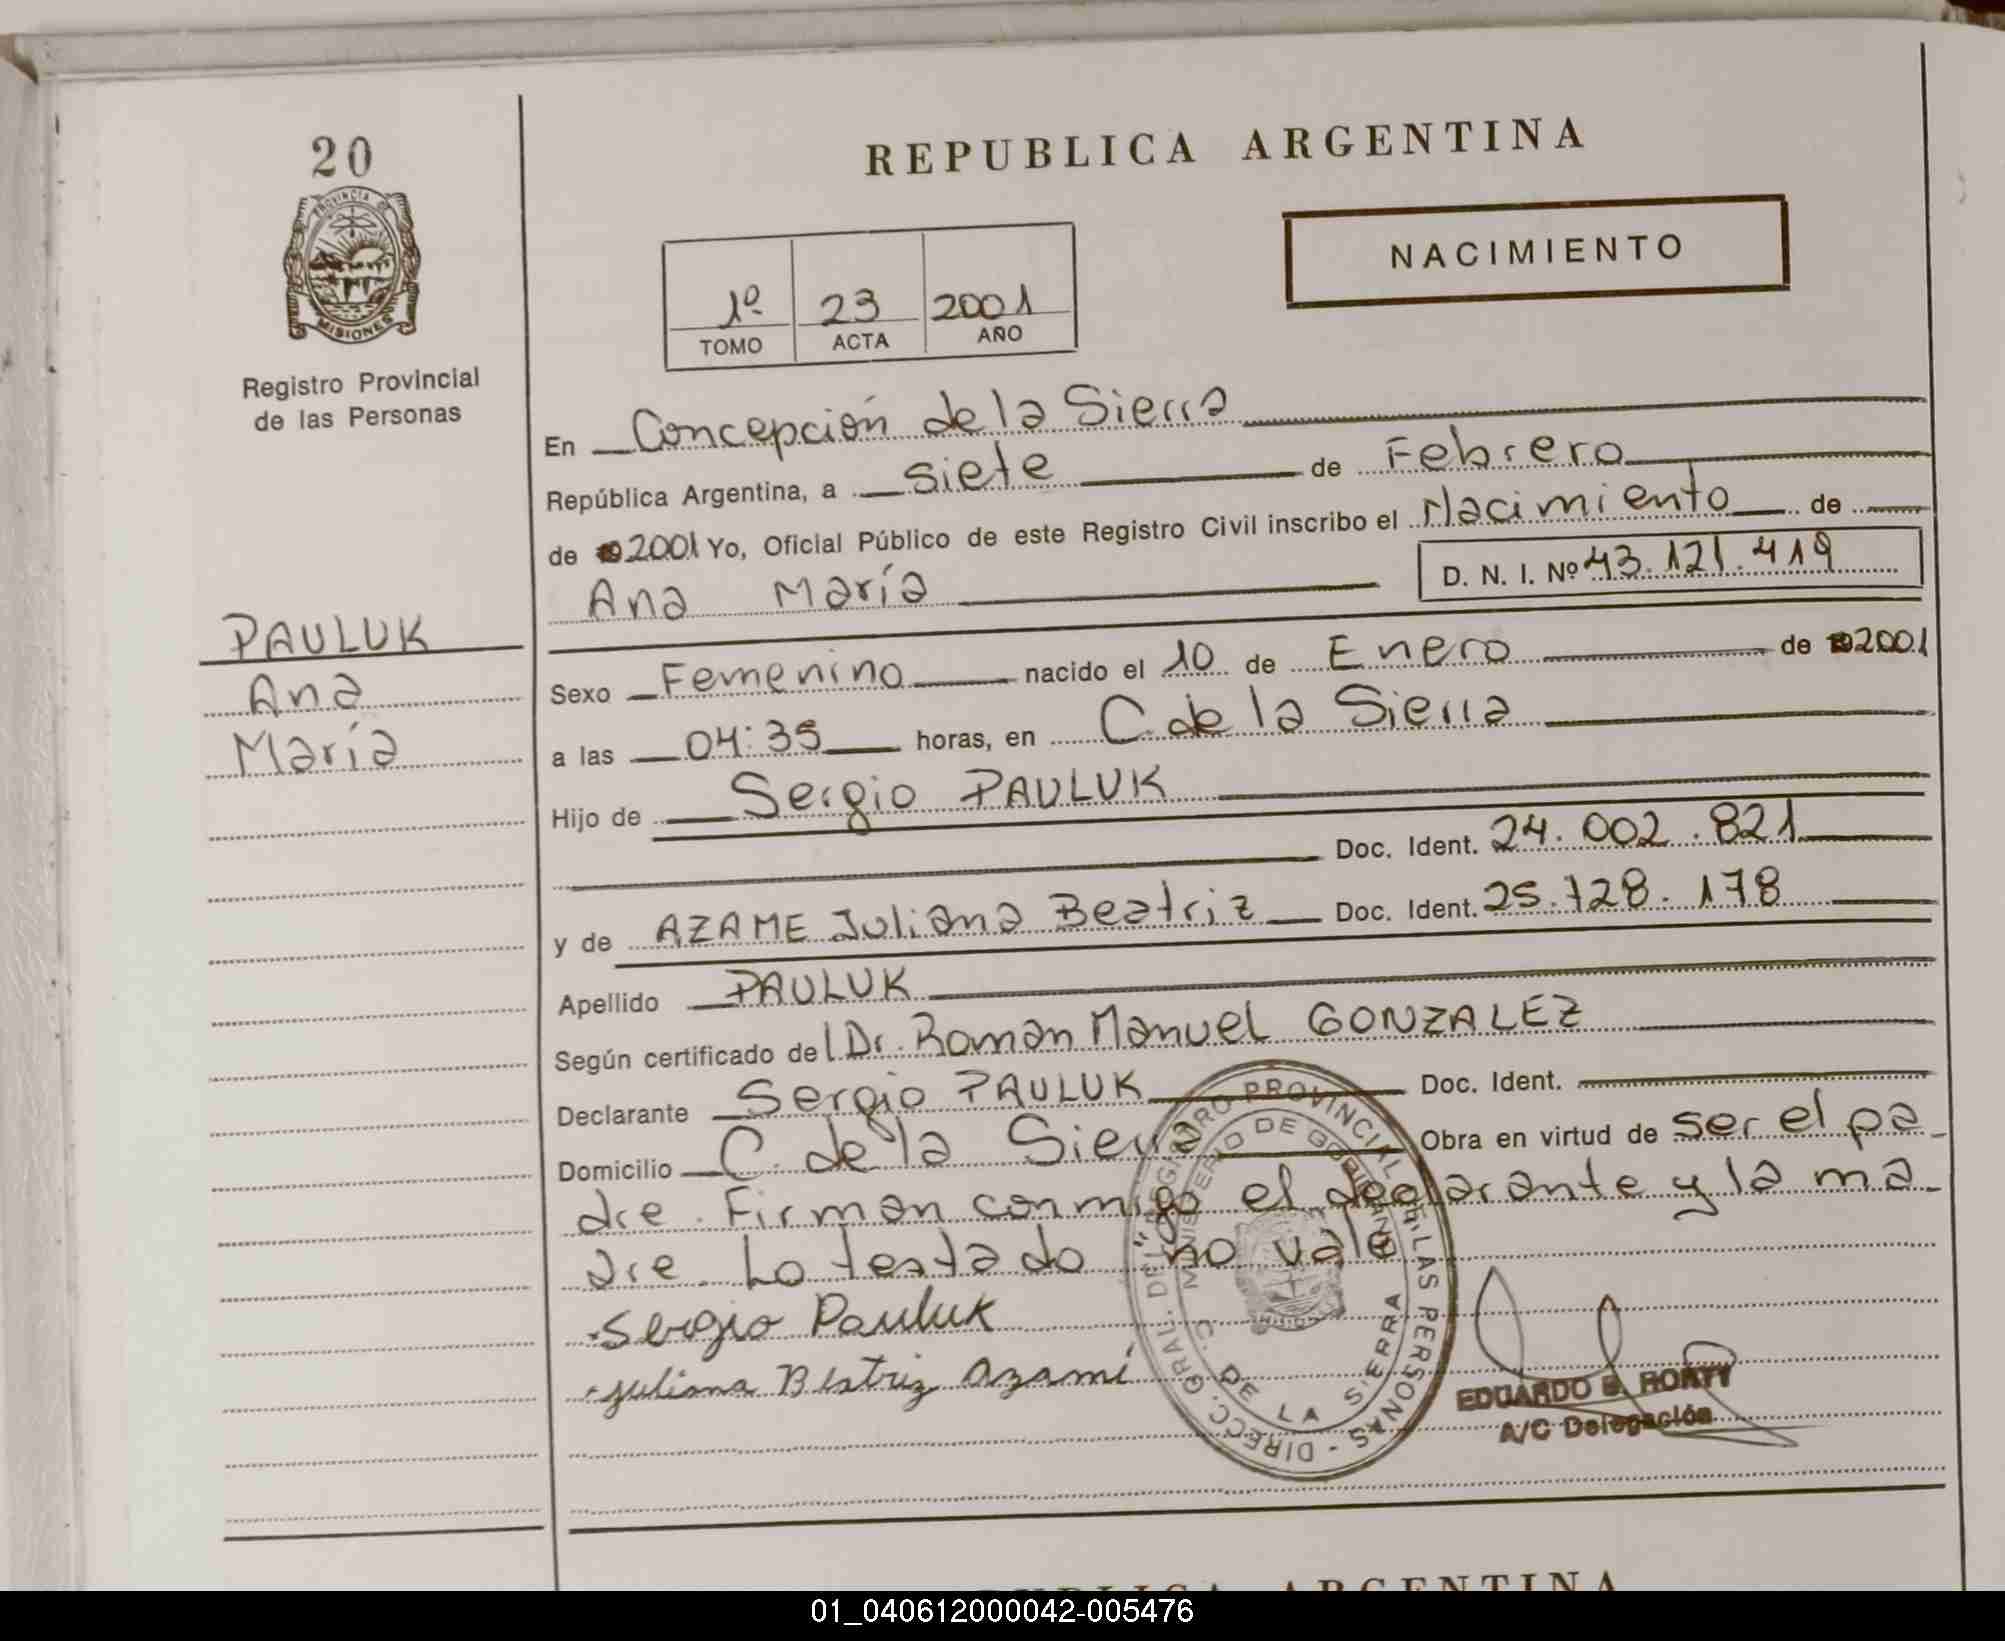 20
PROVINCIA DE
MISIONES
Registro Provincial
de las Personas
PAULUK
Ana
María
REPUBLICA ARGENTINA
NACIMIENTO
1º 23 2001
TOMO ACTA AÑO
En Concepción de la Sierra
República Argentina, a siete de Febrero
de 2001 Yo, Oficial Público de este Registro Civil inscribo el Nacimiento de
Ana María D. N. I. Nº 43.121.419
Sexo Femenino nacido el 10 de Enero de 2001
a las 04:35 horas, en C. de la Sierra
Hijo de Sergio PAULUK
Doc. Ident. 24.002.821
y de AZAME Juliana Beatriz Doc. Ident. 25.728.178
Apellido PAULUK
Según certificado del Dr. Roman Manuel GONZALEZ
Declarante Sergio PAULUK Doc. Ident.
Domicilio C. de la Sierra Obra en virtud de ser el pa-
dre. Firman conmigo el declarante y la ma-
dre. Lo testado "no vale
Sergio Pauluk
Juliana Beatriz Azamé
DIRECC. GRAL. DEL REGISTRO PROVINCIAL DE LAS PERSONAS -
MINISTERIO DE GOBIERNO
C. DE LA SIERRA
EDUARDO E. RORTY
A/C Delegación
REPUBLICA ARGENTINA
01_040612000042-005476